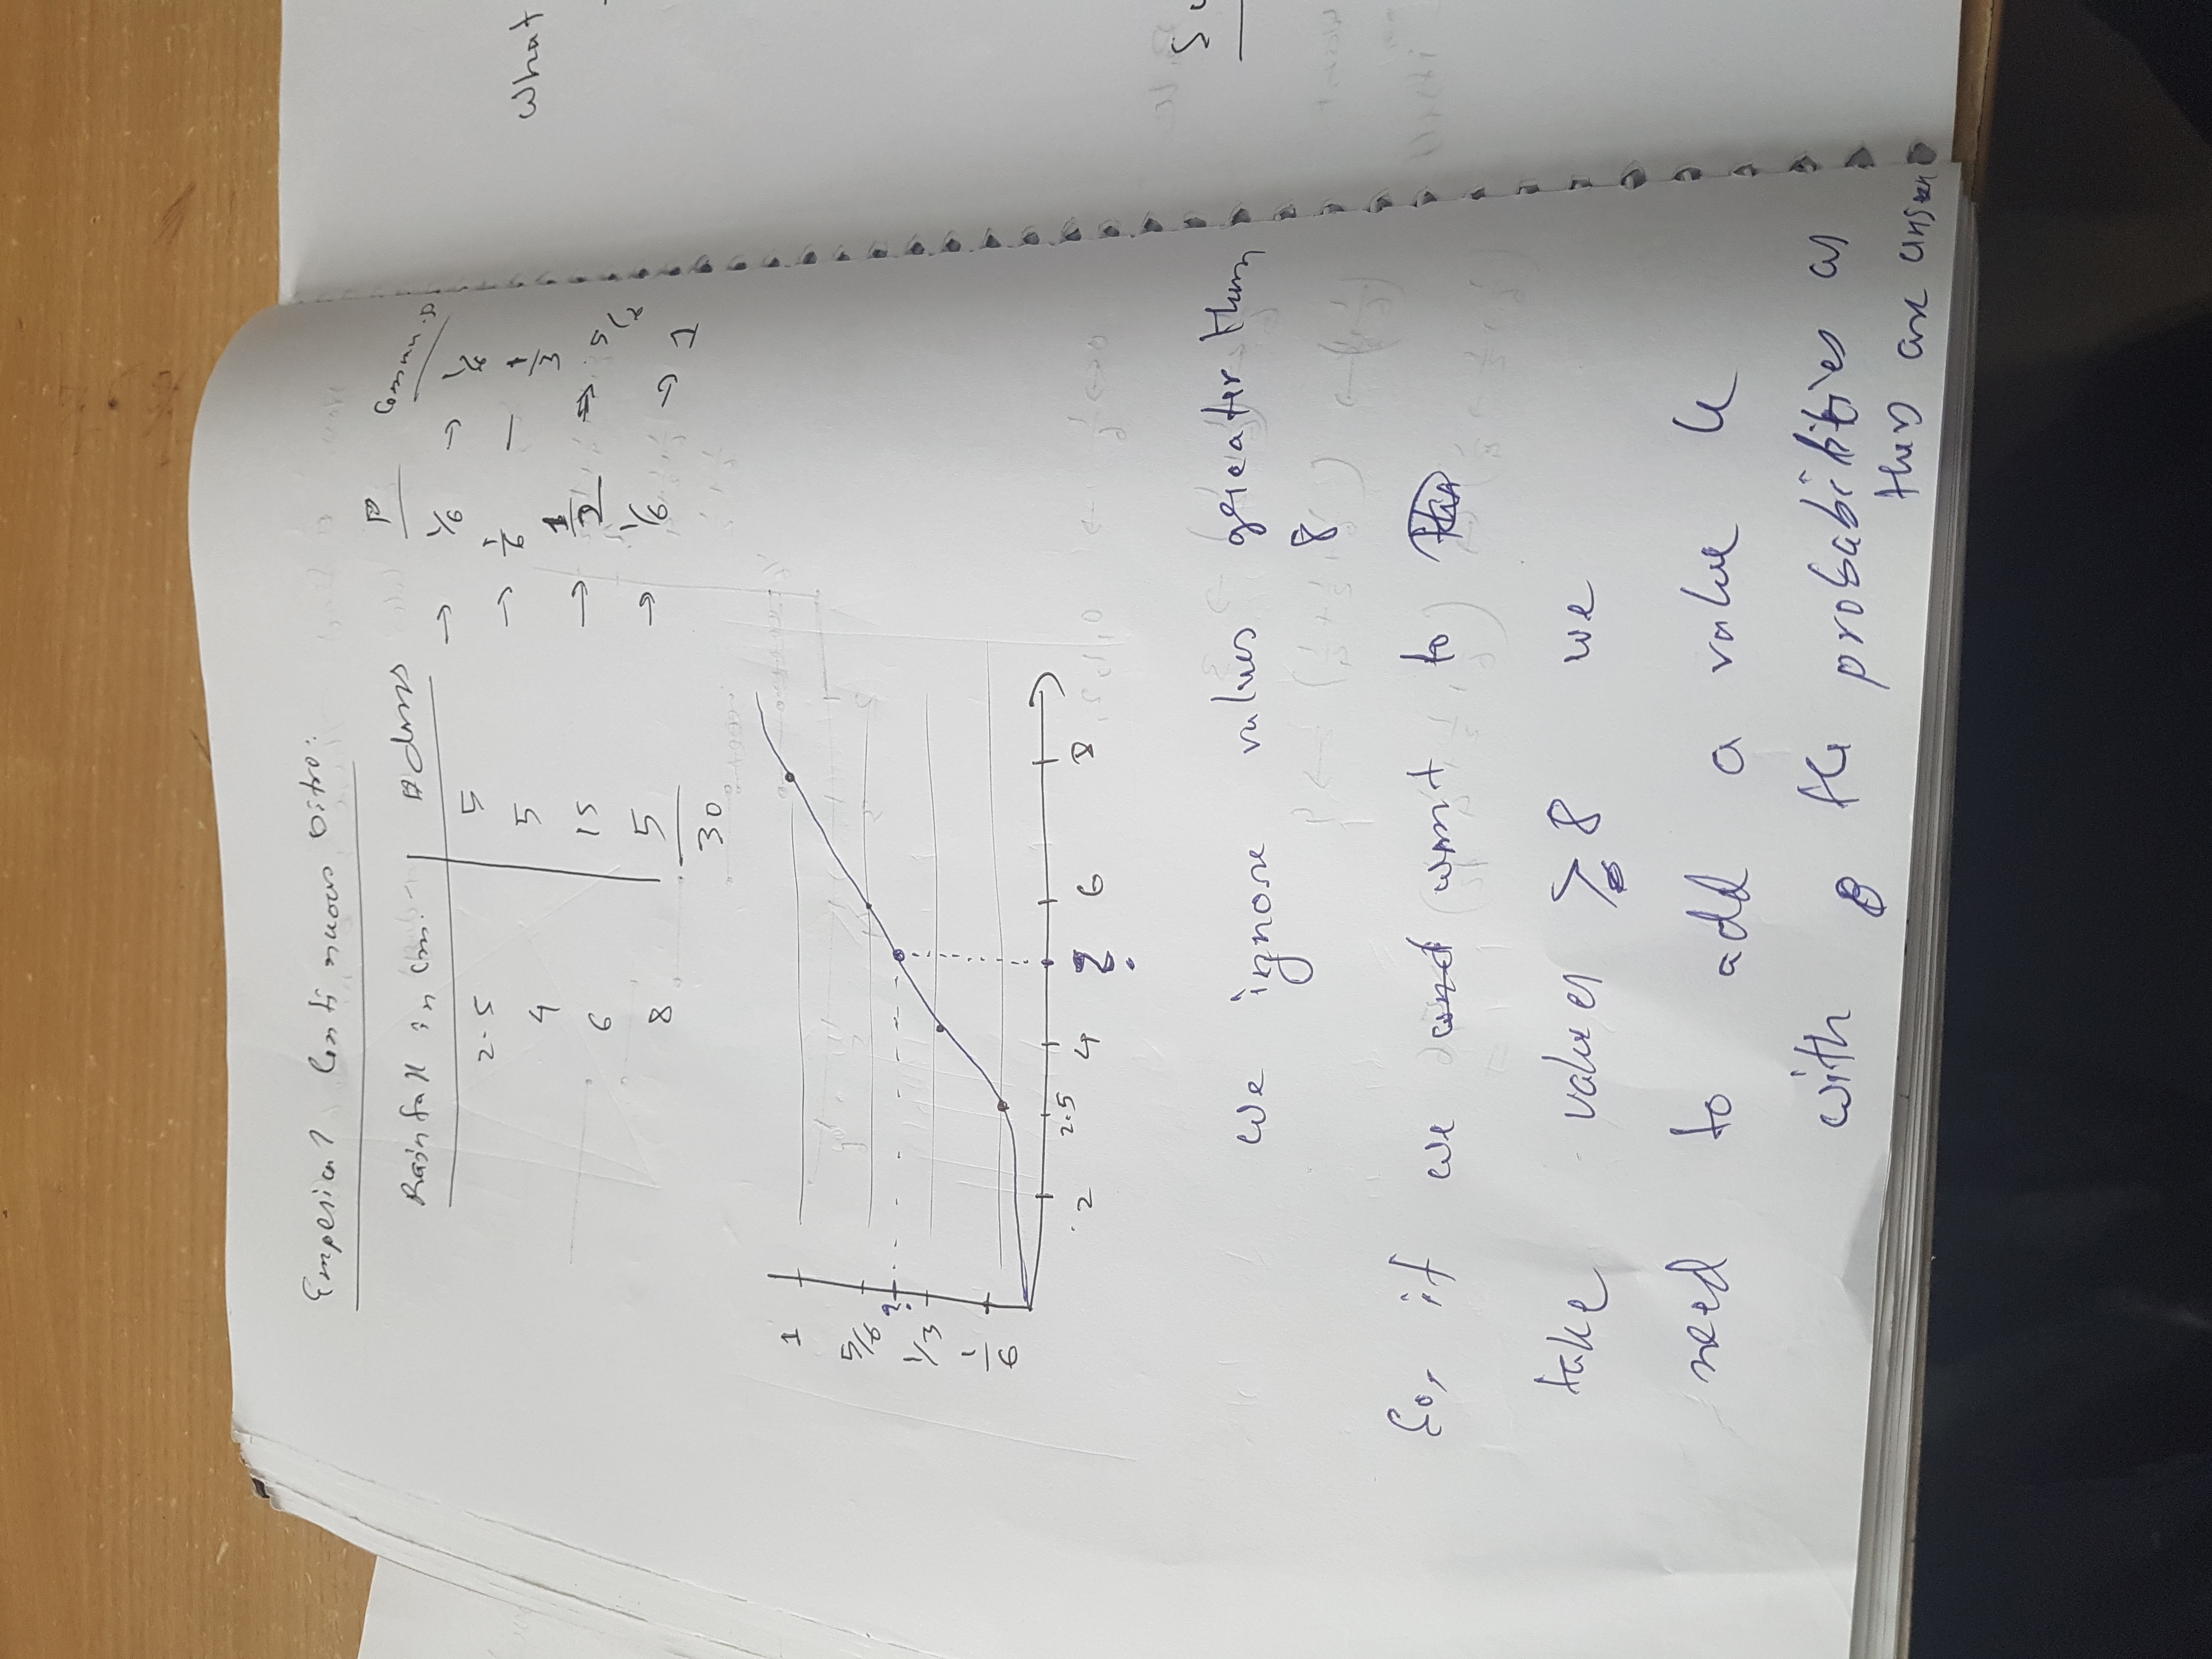 Emperical Continuous Distro:
Rainfall in cm. # days P Comm. P
2.5 5 → 1/6 → 1/6
4 5 → 1/6 — 1/3
6 15 → 1/2 → 5/6
8 5 → 1/6 → 1
30
1
5/6
?
1/3
1/6
2 2.5 4 ? 6 8
we ignore values greater than
8
So, if we want to
take values ≥ 8 we
need to add a value k
with the probabilities as
this are unseen
What